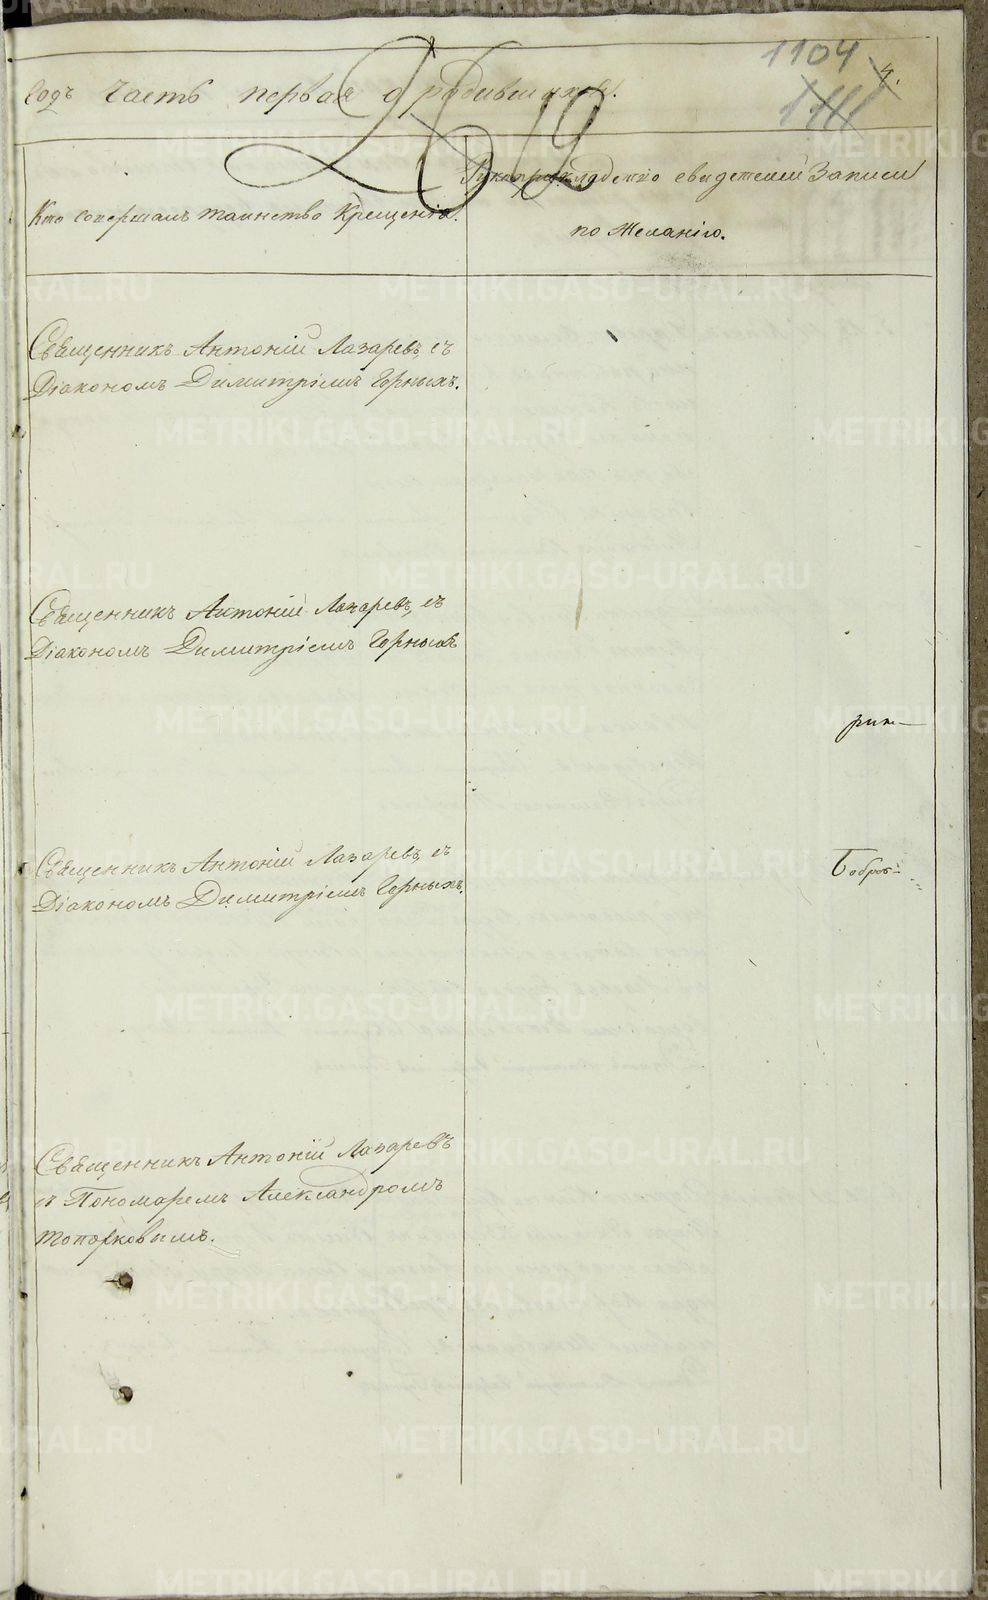 1104
4.
1111
годъ часть первая о родившихся.
Кто совершалъ таинство Крещенія.
Рукоприкладство свидетелей Записи
по Желанію.
Священникъ Антоній Лазаревъ, съ
Діакономъ Димитріемъ Горныхъ.
Священникъ Антоній Лазаревъ, съ
Діакономъ Димитріемъ Горныхъ
Священникъ Антоній Лазаревъ, съ
Діакономъ Димитріемъ Горныхъ.
Бобров
Священникъ Антоній Лазаревъ
съ Пономаремъ Александромъ
Топорковымъ.
METRIKI.GASO-URAL.RU